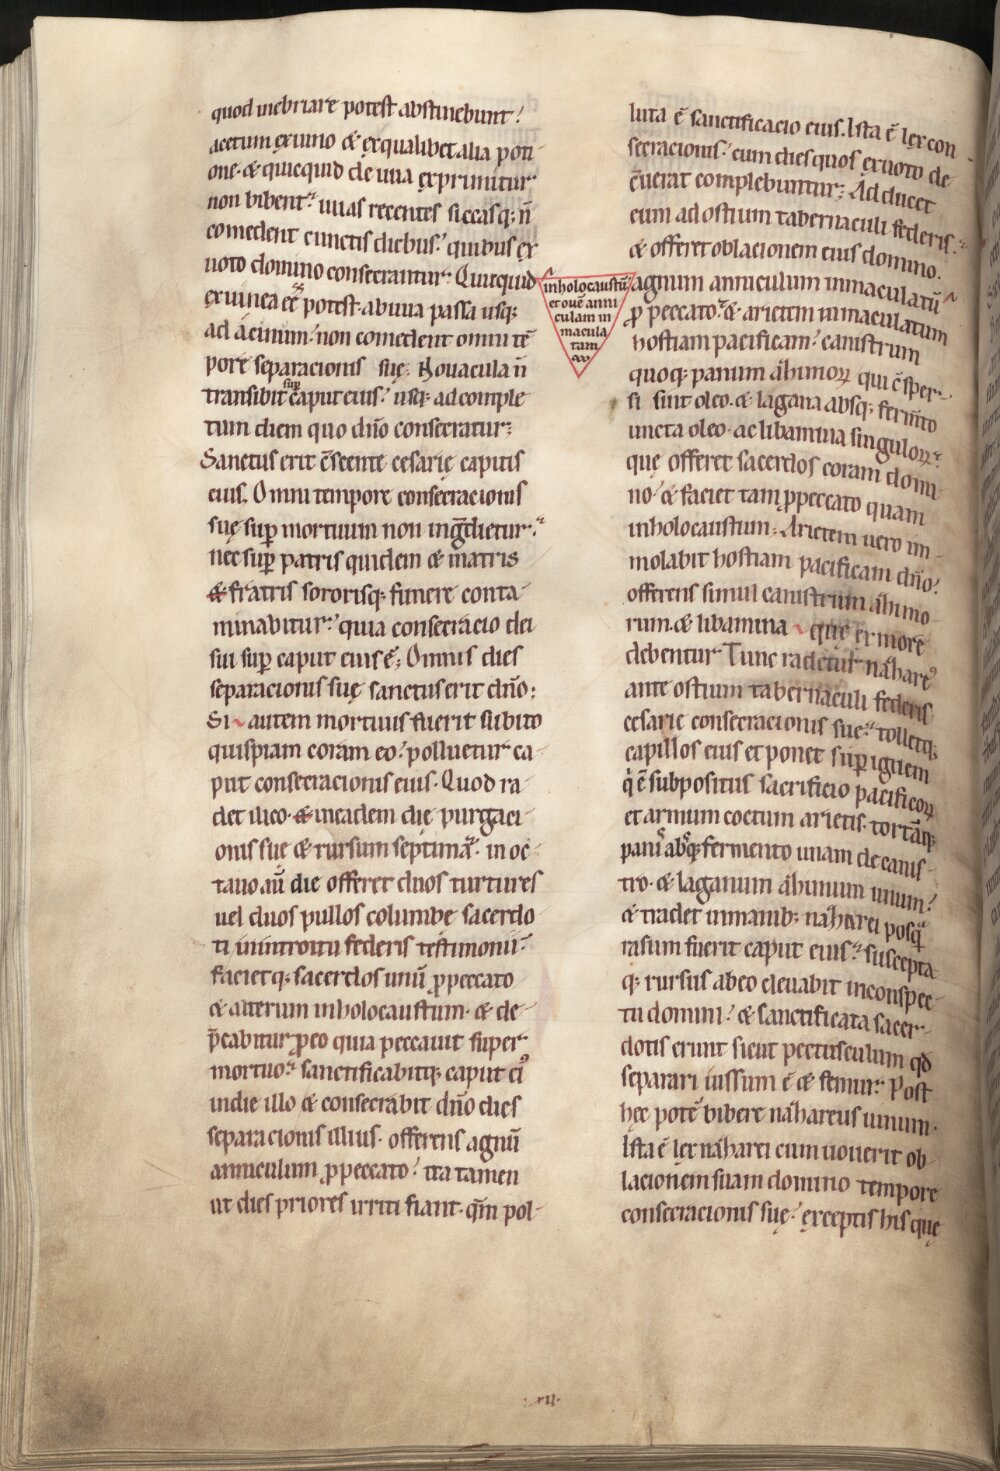 quod inebriare potest abstinebunt.
acetum ex uino & ex qualibet alia poti-
one. & quicquid de uua exprimitur
non bibent. uuas recentes siccasq; n̄
comedent cunctis diebus. quibus ex
uoto domino consecrantur. Quicquid
ex uinea eē potest. ab uua passa usq;
ad acinum. non comedent omni tē
pore separacionis suę. Nouacula n̄
transibit sup caput eius. usq; ad comple
tum diem quo dn̄o consecratur.
Sanctus erit c̄scente cesarię capitis
eius. Omni tempore consecracionis
suę sup mortuum non ingdietur.
nec sup patris quidem & matris
& fratris sororisq; funere conta-
minabitur. quia consecracio dei
sui sup caput eius ē. Omnis dies
separacionis suę sanctus erit dn̄o.
Si autem mortuus fuerit subito
quispiam coram eo. polluetur ca-
put consecracionis eius. Quod ra-
det ilico. & in eadem die purgaci-
onis suę & rursum septima. in oc-
tauo aū die offeret duos turtures
uel duos pullos columbę sacerdo-
ti in introitu federis testimonii.
facietq; sacerdos unū p peccato
& alterum in holocaustum. & de-
p̄cabitur p eo quia peccauit super
mortuo. sanctificabitq; caput ei'
in die illo & consecrabit dn̄o dies
separacionis illius. offerens agnū
anniculum p peccato. ita tamen
ut dies priores irriti fiant. qm̄ pol-
in holocaustū
et ouē anni
culam in
macula
tam
luta ē sanctificacio eius. Ista ē lex con-
secracionis. cum dies quos ex uoto de-
c̄uerat complebuntur. Adducet
eum ad ostium tabernaculi federis.
& offeret oblacionem eius domino.
agnum anniculum inmaculatū
p peccato. & arietem inmaculatum
hostiam pacificam. canistrum
quoq; panum āhimoꝝ qui c̄sper-
si sint oleo. & lagana absq; ferm̄to
uncta oleo. ac libamina singuloꝝ.
quę offeret sacerdos coram domi-
no. & faciet tam p peccato quam
in holocaustum. Arietem uero im-
molabit hostiam pacificam dn̄o.
offerens simul canistrum āhimo-
rum. & libamina que ex more
debentur Tunc radetur nāhare'
ante ostium tabernaculi federis
cesarie consecracionis sue. tolletq;
capillos eius et ponet sup ignem
q̇ ē subpositus sacrificio pacificoꝝ
et armum coctum arietis. tortāq;
panis absq; fermento unam de canis-
tro. & laganum āhimum unum.
& tradet in manib; nāharei posqā
rasum fuerit caput eius. suscepta-
q; rursus ab eo eleuabit in conspec-
tu domini. & sanctificata sacer-
dotis erunt sicut pectusculum qd̄
separari iussum ē & femur. Post
hęc potē bibere nāhareus uinum.
Ista ē lex nāharei cum uouerit ob-
lacionem suam domino tempore
consecracionis suę. exceptis his quę
.VII.